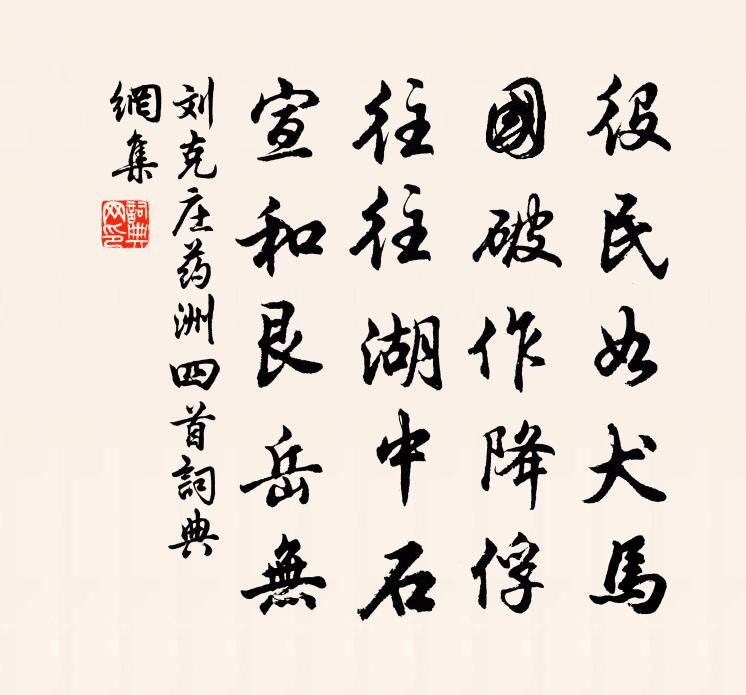 役民如犬馬
國破作降俘
往往湖中石
宣和艮岳無
刘克庄药洲四首詞典
網集
詞典網印